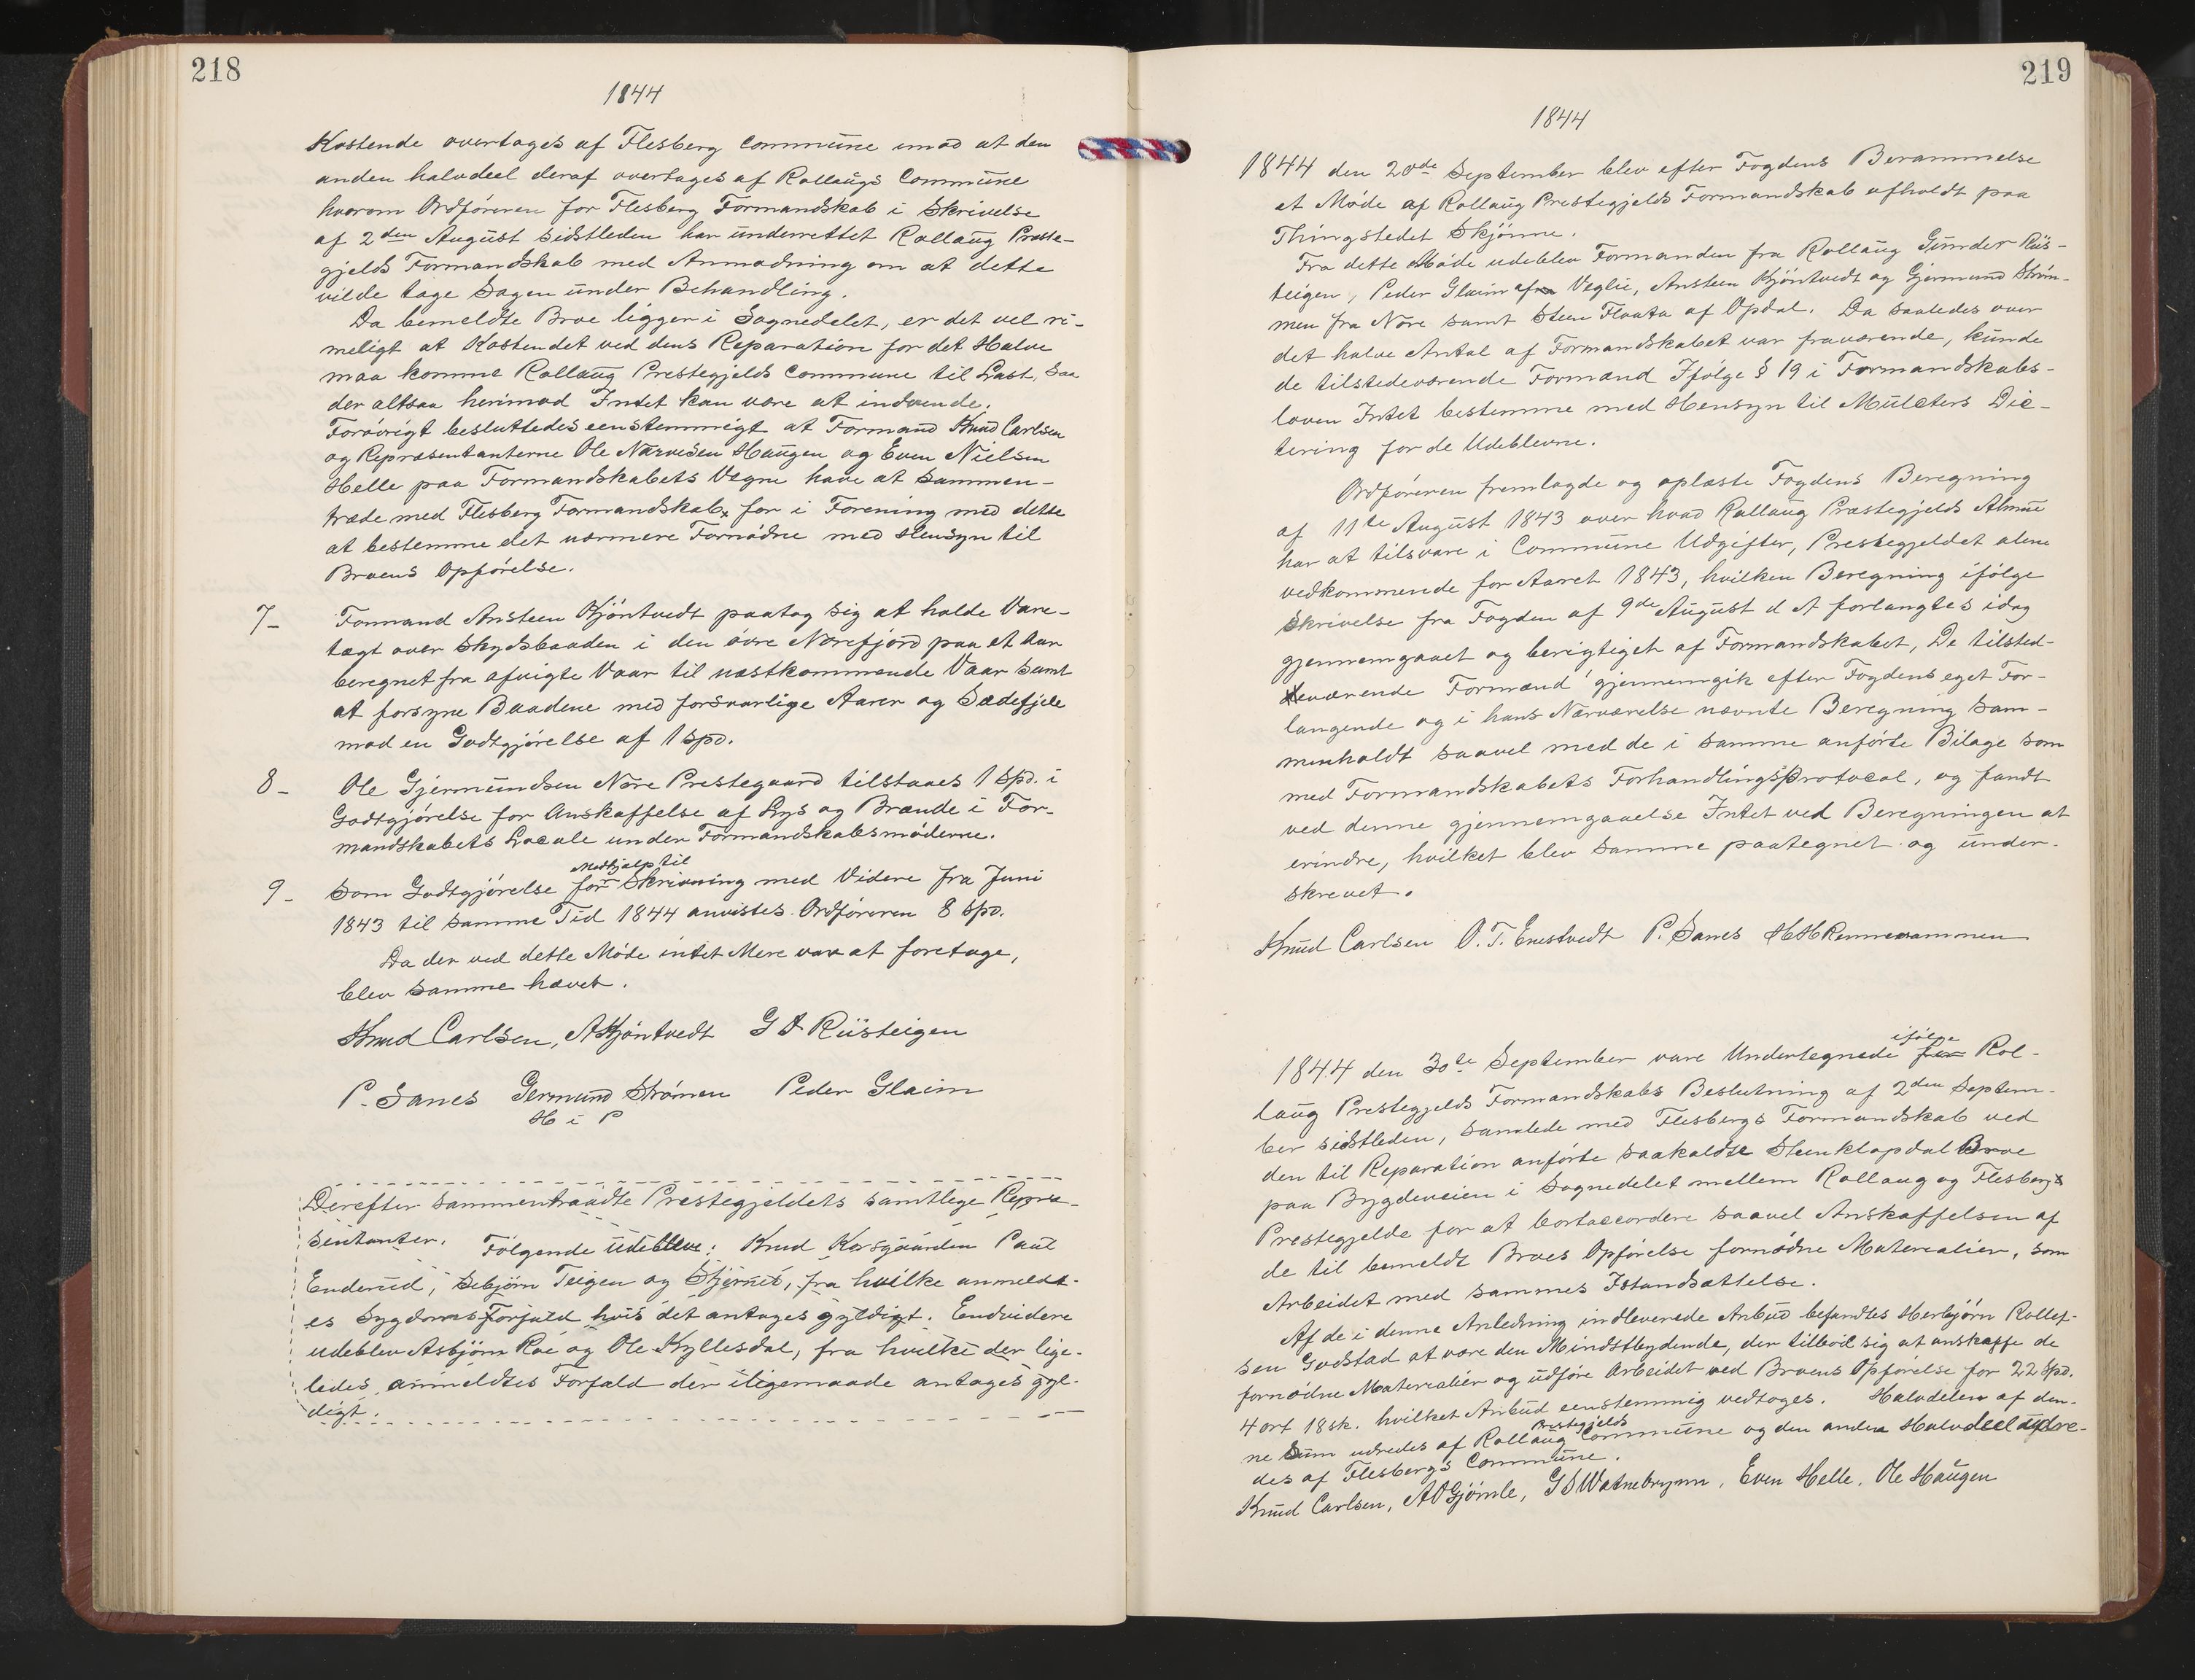 218
1844
Kostende overtages af Flesberg Commune imod at den
anden halvdeel deraf overtages af Rollaugs Commune
hvorom Ordföreren for Flesberg Formandskab i Skrivelse
af 2den August sidstleden har underrettet Rollaug Præste-
gjelds Formandskab med Anmodning om at dette
vilde tage Sagen under Behandling.
Da bemeldte Broe ligger i Sognedelet, er det vel ri-
meligt at Kostendet ved dens Reparation for det Halve
maa komme Rollaug Prestegjelds Commune til Last, saa
der altsaa herimod Intet kan være at indvende.
Forövrigt besluttedes eenstemmigt at Formand Knud Carlsen
og Repræsentanterne Ole Narvesen Haugen og Even Nielsen
Helle paa Formandskabets Vegne have at sammen-
træde med Flesberg Formandskab, for i Forening med dette
at bestemme det nærmere Fornödne med Hensyn til
Broens Opförelse.
7- Formand Ansteen Kjöntvedt paatog sig at holde Vare-
tægt over Skydsbaaden i den övre Norefjord paa et Aar
beregnet fra afvigte Vaar til næstkommende Vaar samt
at forsyne Baadene med forsvarlige Aarer og Sædefjele
mod en Godtgjörelse af 1 Spd.
8- Ole Gjermundsen Nore Prestegaard tilstaaes 1 Spd. i
Godtgjörelse for Anskaffelse af Lys og Brænde i For-
mandskabets Locale under Formandskabsmöderne.
Medhjælp til
9- Som Godtgjörelse for Skrivning med Videre fra Juni
1843 til samme Tid 1844 anvistes Ordföreren 8 Spd.
Da der ved dette Möde intet Mere var at foretage,
blev samme hævet.
Knud Carlsen, AKjöntvedt G A Riisteigen
P. Sanes Germund Strömen Peder Glaim
H i P
Derefter sammentraadte Prestegjeldets samtlege Repræ-
sentanter. Fölgende udebleve: Knud Korsgaarden Paul
Enderud, Sebjörn Teigen og Stjernes, fra hvilke anmeldt-
es Sygdoms Forfald hvis det antages gyldigt. Endvidere
udeblev Asbjörn Röe og Ole Kyllesdal, fra hvilke der lige-
ledes anmeldtes Forfald der iligemaade antages gyl-
digt.
219
1844
1844 den 20de September blev efter Fogdens Berammelse
et Möde af Rollaug Prestegjelds Formandskab afholdt paa
Thingstedet Skjönne.
Fra dette Möde udeblev Formanden fra Rollaug Gunder Riis-
teigen, Peder Glaim fra Veglie, Ansteen Kjöntvedt og Gjermund Ström-
men fra Nore samt Steen Flaata af Opdal. Da saaledes over
det halve Antal af Formandskabet var fraværende, kunde
de tilstedeværende Formænd Ifölge § 19 i Formandskabs-
loven Intet bestemme med Hensyn til Mulcters Dic-
tering for de Udeblevne.
Ordföreren fremlagde og oplæste Fogdens Beregning
af 11te August 1843 over hvad Rollaug Præstegjelds Almue
har at tilsvare i Commune Udgifter, Prestegjeldet alene
vedkommende for Aaret 1843, hvilken Beregning ifölge
Skrivelse fra Fogden af 9de August d A forlangtes idag
gjennemgaaet og berigtiget af Formandskabet, De tilsted-
eværende Formænd gjennemgik efter Fogdens eget For-
langende og i hans Nærværelse nævnte Beregning sam-
menholdt saavel med de i samme anförte Bilage som
med Formandskabets Forhandlings Protocol, og fandt
ved denne gjennemgaaelse Intet ved Beregningen at
erindre, hvilket blev samme paategnet og under-
skrevet.
Knud Carlsen O. T. Enestvedt P. Sanes HHRennesammen
ifölge
1844 den 30te September vare Undertegnede for Rol-
laug Prestegjelds Formandskabs Beslutning af 2den Septem-
ber sidstleden, samlede med Flesbergs Formandskab ved
den til Reparation anförte saakaldte Steenklopdal Broe
paa Bygdeveien i Sognedelet mellem Rollaug og Flesbergs
Prestegjelde for at bortaccordere saavel Anskaffelsen af
de til bemeldt Broes Opförelse fornödne Materealier, som
Arbeidet med sammes Istandsættelse.
Af de i denne Anledning indleverede Anbud befandtes Herbjörn Rollef-
sen Godstad at være den Mindstbydende, der tilböd sig at anskaffe de
fornödne Materealier og udföre Arbeidet ved Broens Opförelse for 22 Spd.
4 ort 18 sk. hvilket Anbud eenstemmig vedtoges. Halvdelen af den-
Prestegjelds
ne Sum udredes af Rollaug Commune og den anden Halvdeel udre-
des af Flesbergs Commune.
Knud Carlsen, AOGjömle, GSWatnebrynn, Even Helle, Ole Haugen